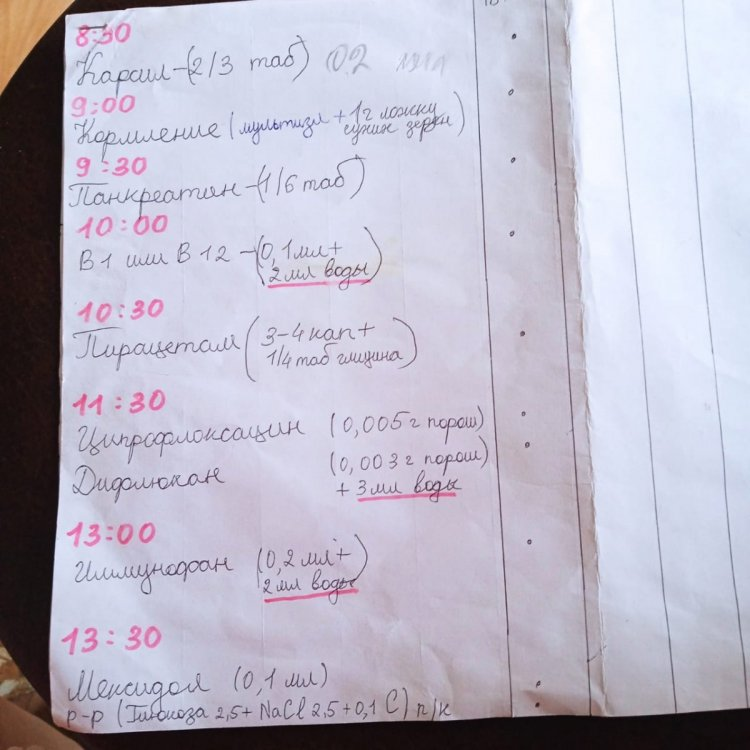 8:30
Карсил-(2/3 таб) 02
9:00
Кормление (мультизл + 1г ложку
сухих зерен)
9:30
Панкреатин-(1/6 таб)
10:00
В1 или В12-(0,1мл+
2мл воды)
10:30
Пирацетам (3-4кап+
1/4таб глицина)
11:30
Ципрофлоксацин (0,005г порош)
Дифлюкан (0,003г порош)
+ 3мл воды
13:00
Иммунофан (0,2мл+
2мл воды)
13:30
Мексидол (0,1мл)
р-р (Глюкоза 2,5+ NaCl 2,5+0,1 С) п/к